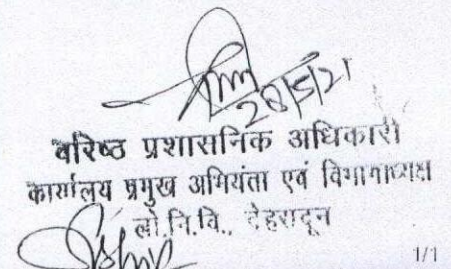 28/5/21
वरिष्ठ प्रशासनिक अधिकारी
कार्यालय प्रमुख अभियंता एवं विभागाध्यक्ष
लो.नि.वि., देहरादून
1/1